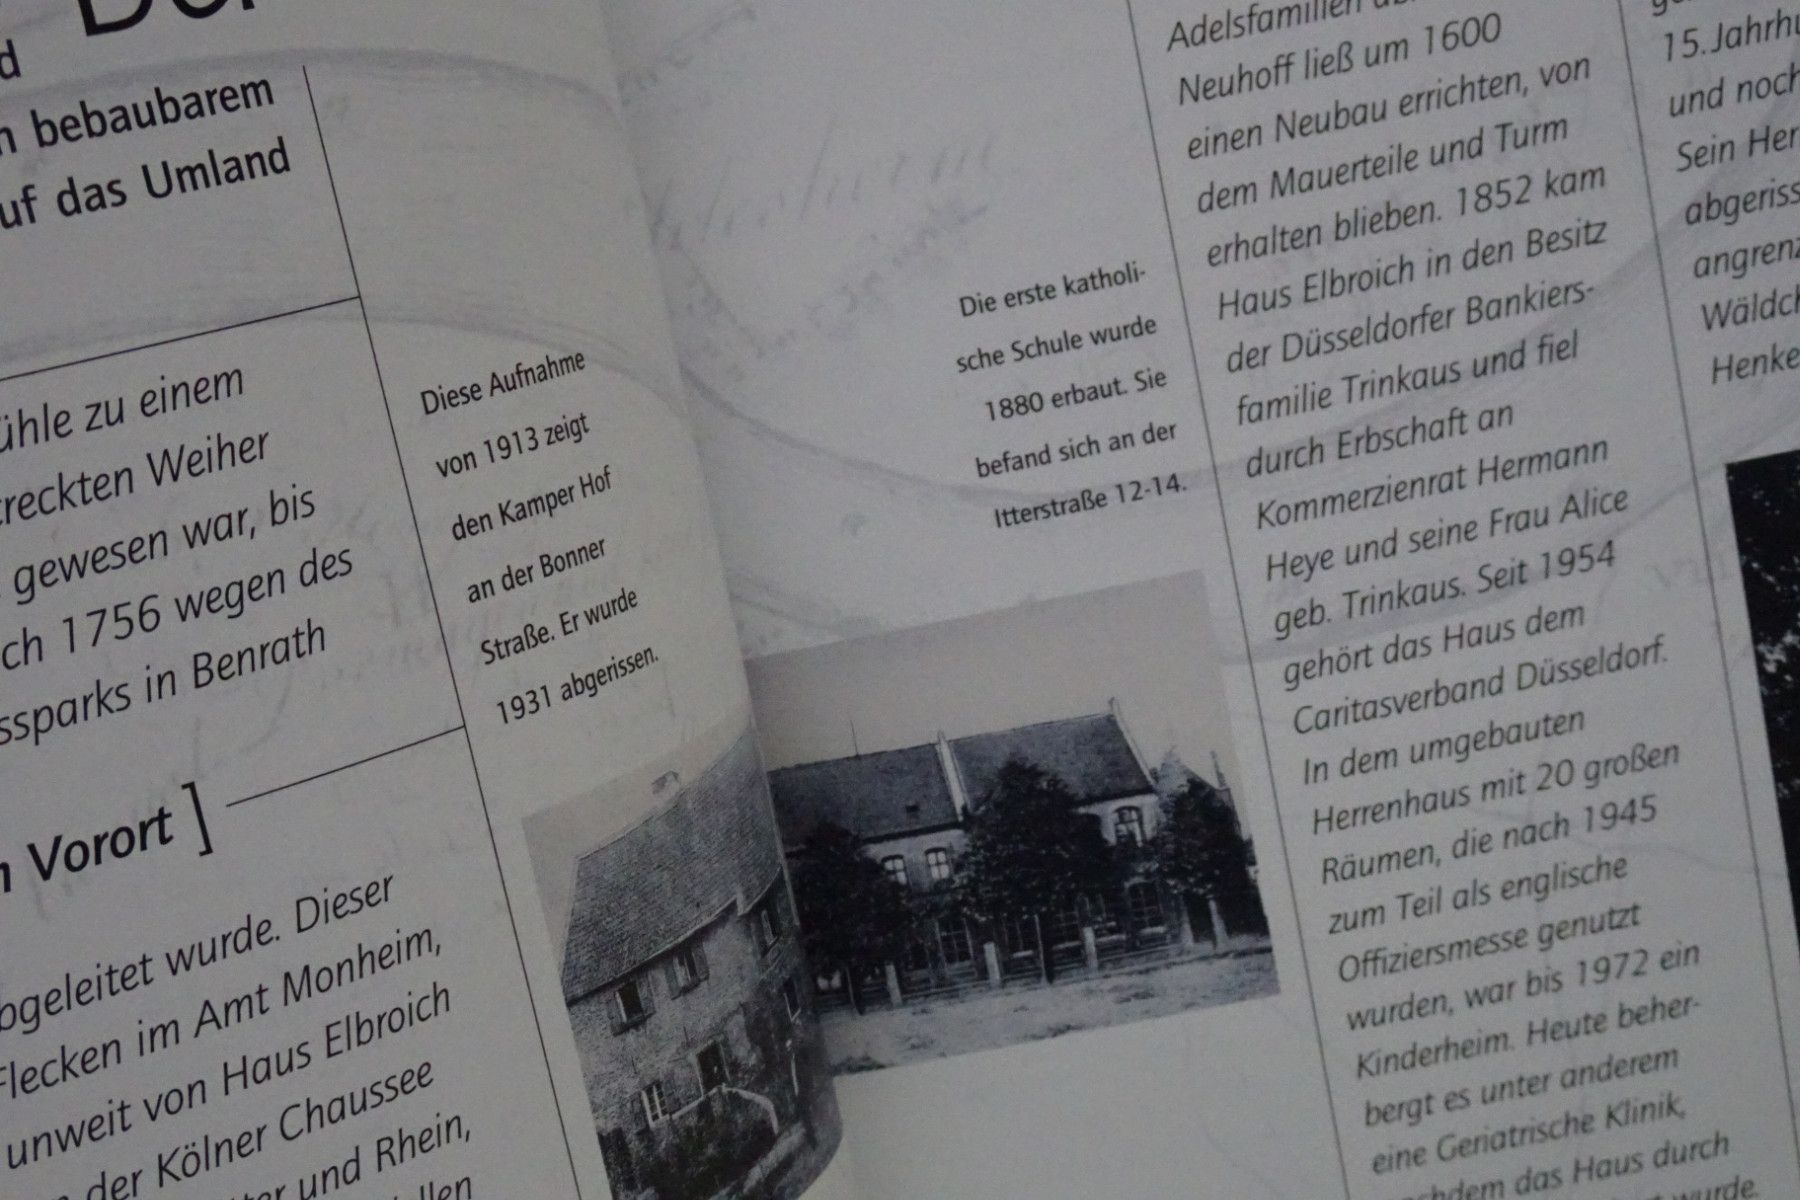 d
bebaubarem
uf das Umland
zu einem
Weiher
gewesen war, bis
1756 wegen des
in Benrath
Vorort ]
wurde. Dieser
im Amt Monheim,
unweit von Haus Elbroich
der Kölner Chaussee
und Rhein,
Diese Aufnahme
von 1913 zeigt
den Kamper Hof
an der Bonner
Straße. Er wurde
1931 abgerissen.
Die erste katholi-
sche Schule wurde
1880 erbaut. Sie
befand sich an der
Itterstraße 12-14.
Adelsfamilien
Neuhoff ließ um 1600
einen Neubau errichten, von
dem Mauerteile und Turm
erhalten blieben. 1852 kam
Haus Elbroich in den Besitz
der Düsseldorfer Bankiers-
familie Trinkaus und fiel
durch Erbschaft an
Kommerzienrat Hermann
Heye und seine Frau Alice
geb. Trinkaus. Seit 1954
gehört das Haus dem
Caritasverband Düsseldorf.
In dem umgebauten
Herrenhaus mit 20 großen
Räumen, die nach 1945
zum Teil als englische
Offiziersmesse genutzt
wurden, war bis 1972 ein
Kinderheim. Heute beher-
bergt es unter anderem
eine Geriatrische Klinik,
das Haus durch
wurde
15. Jahrhu
und noch
Sein Her
abgeriss
angrenz
Wäldch
Henke